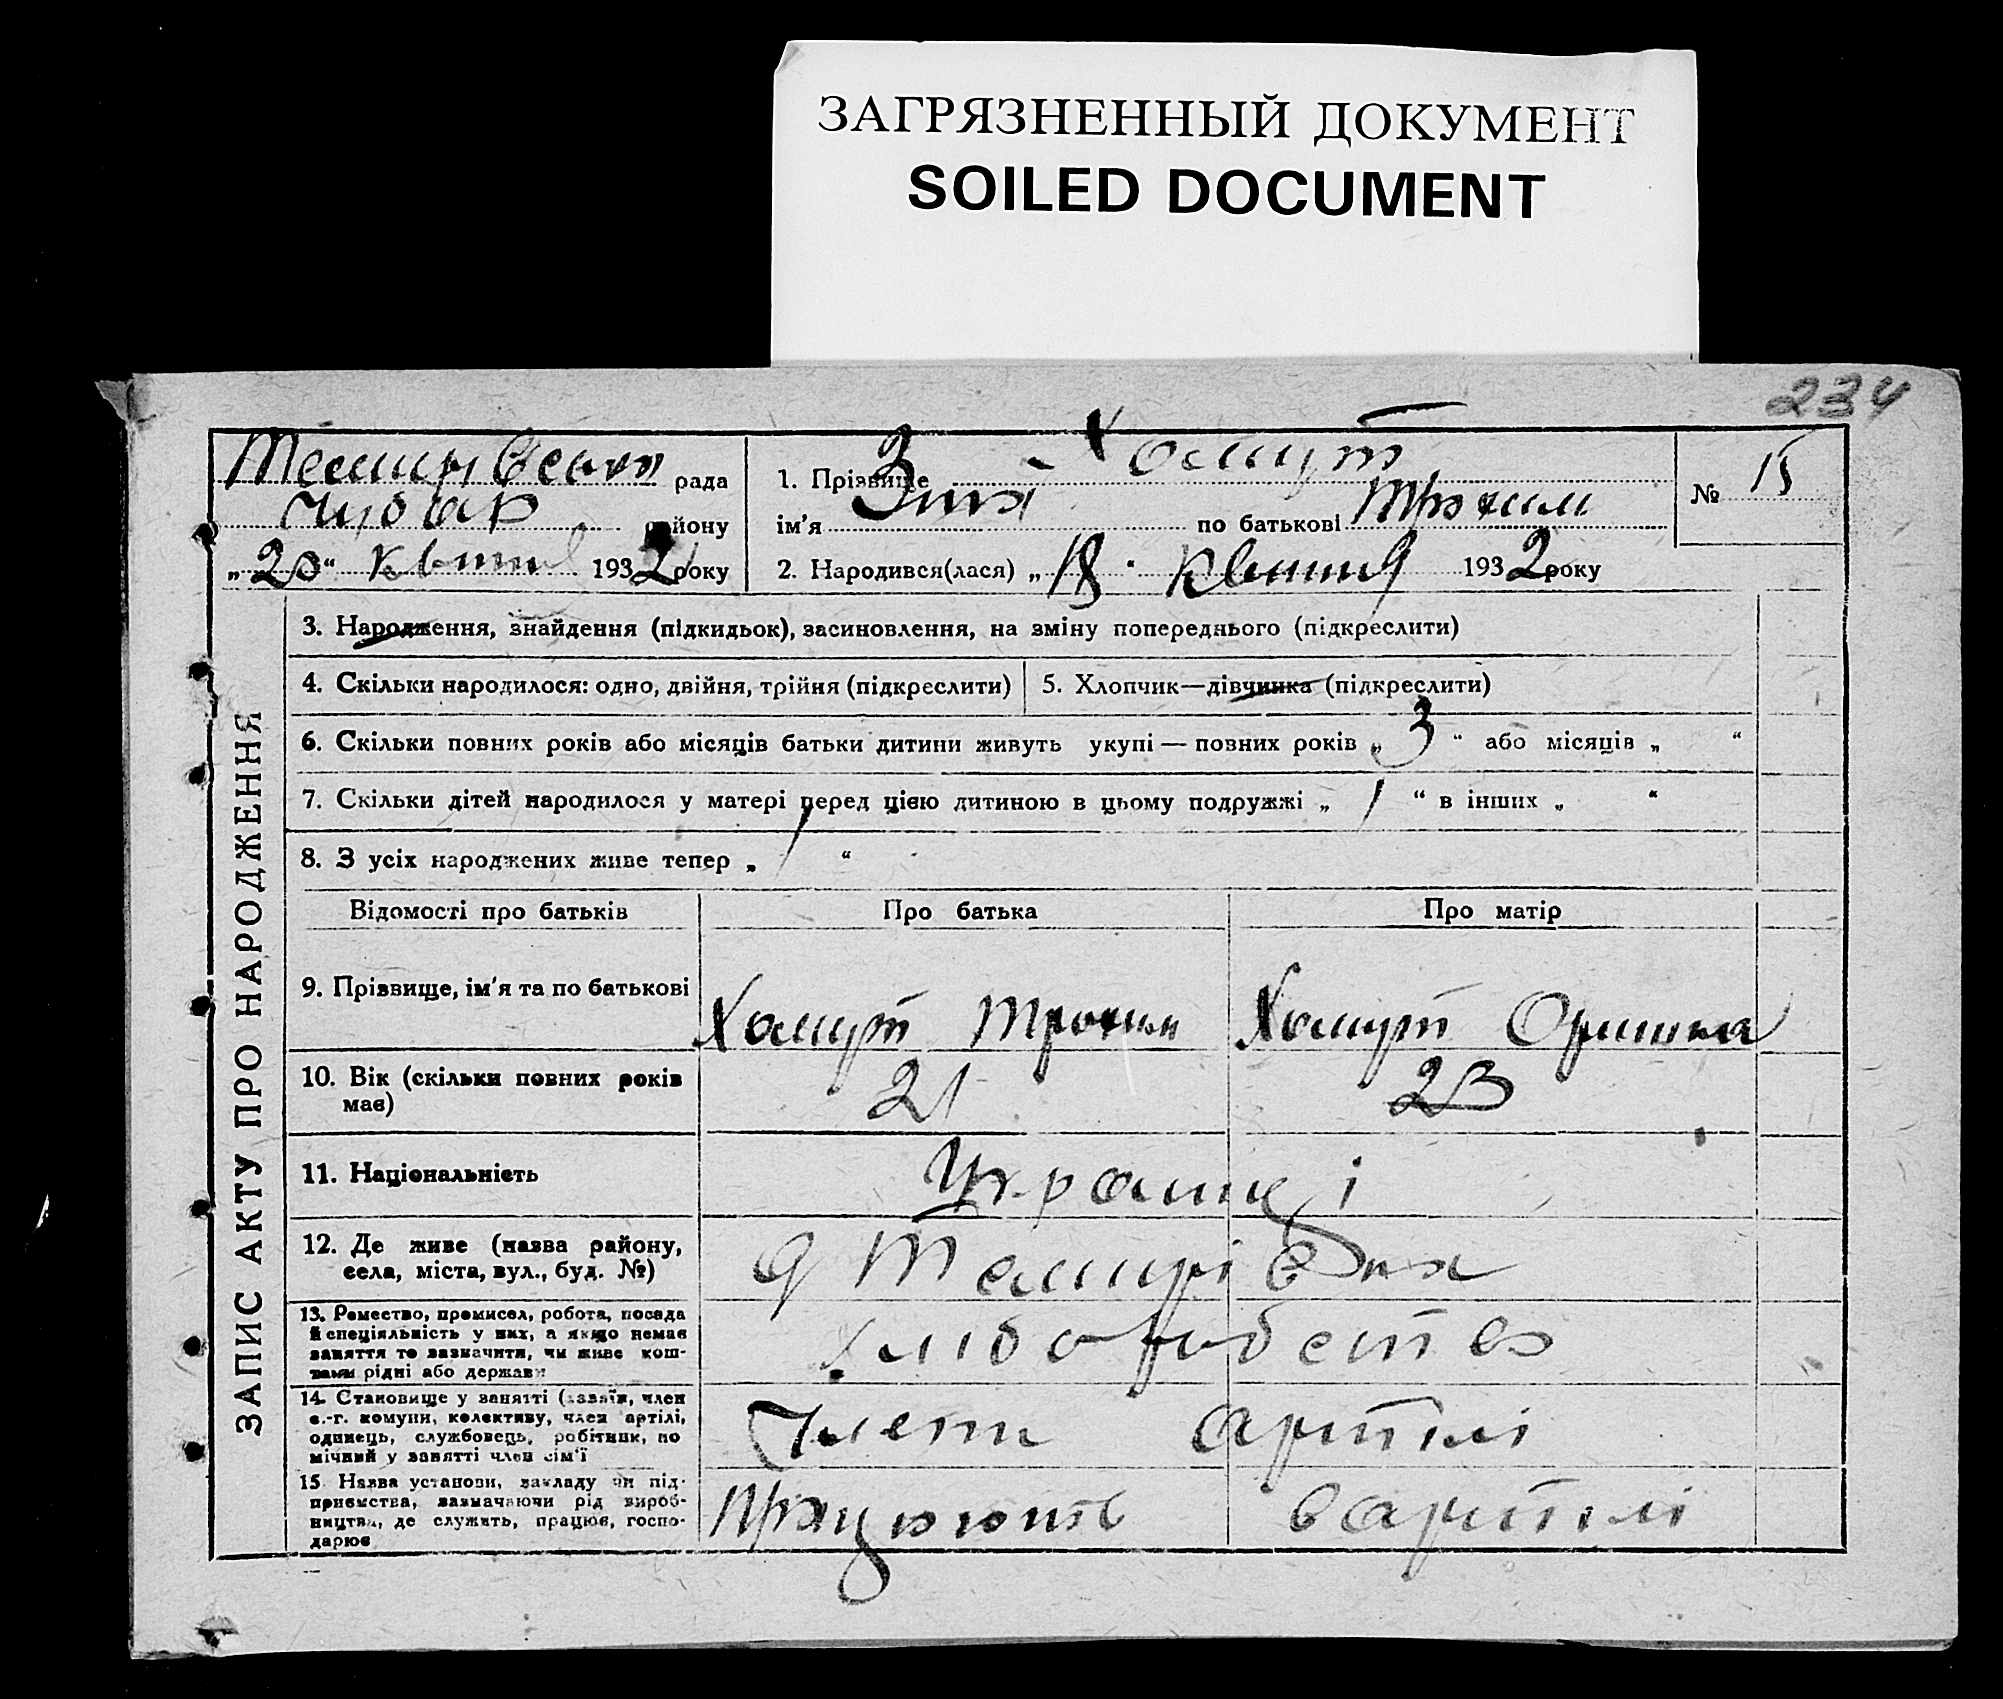 ЗАГРЯЗНЕННЫЙ ДОКУМЕНТ
SOILED DOCUMENT
234
рада
району
„20“ 1932 року
1. Прізвище Хомут
ім'я по батькові Трохим
2. Народився(лася) „18“ квітня 1932 року
№ 15
ЗАПИС АКТУ ПРО НАРОДЖЕННЯ
3. Народження, знайдення (підкидьок), засиновлення, на зміну попереднього (підкреслити)
4. Скільки народилося: одно, двійня, трійня (підкреслити)
5. Хлопчик—дівчинка (підкреслити)
6. Скільки повних років або місяців батьки дитини живуть укупі — повних років „3“ або місяців „ “
7. Скільки дітей народилося у матері перед цією дитиною в цьому подружжі „1“ в інших „ “
8. З усіх народжених живе тепер „1“
Відомості про батьків Про батька Про матір
9. Прізвище, ім'я та по батькові Хомут Трохим Хомут Оришка
10. Вік (скільки повних років
має) 21 23
11. Національність Українці
12. Де живе (назва району,
села, міста, вул., буд. №)
13. Ремество, промисел, робота, посада
й спеціяльність у них, а якщо немає
заняття то зазначити, чи живе кош-
тами рідні або держави
14. Становище у занятті (хазяїн, член
с.-г. комуни, колективу, член артілі,
одинець, службовець, робітник, по
мічний у занятті член сім'ї
Члени артілі
15. Назва установи, закладу чи під-
приємства, зазначаючи рід вироб-
ництва, де служить, працює, госпо-
дарює
Працюють в артілі